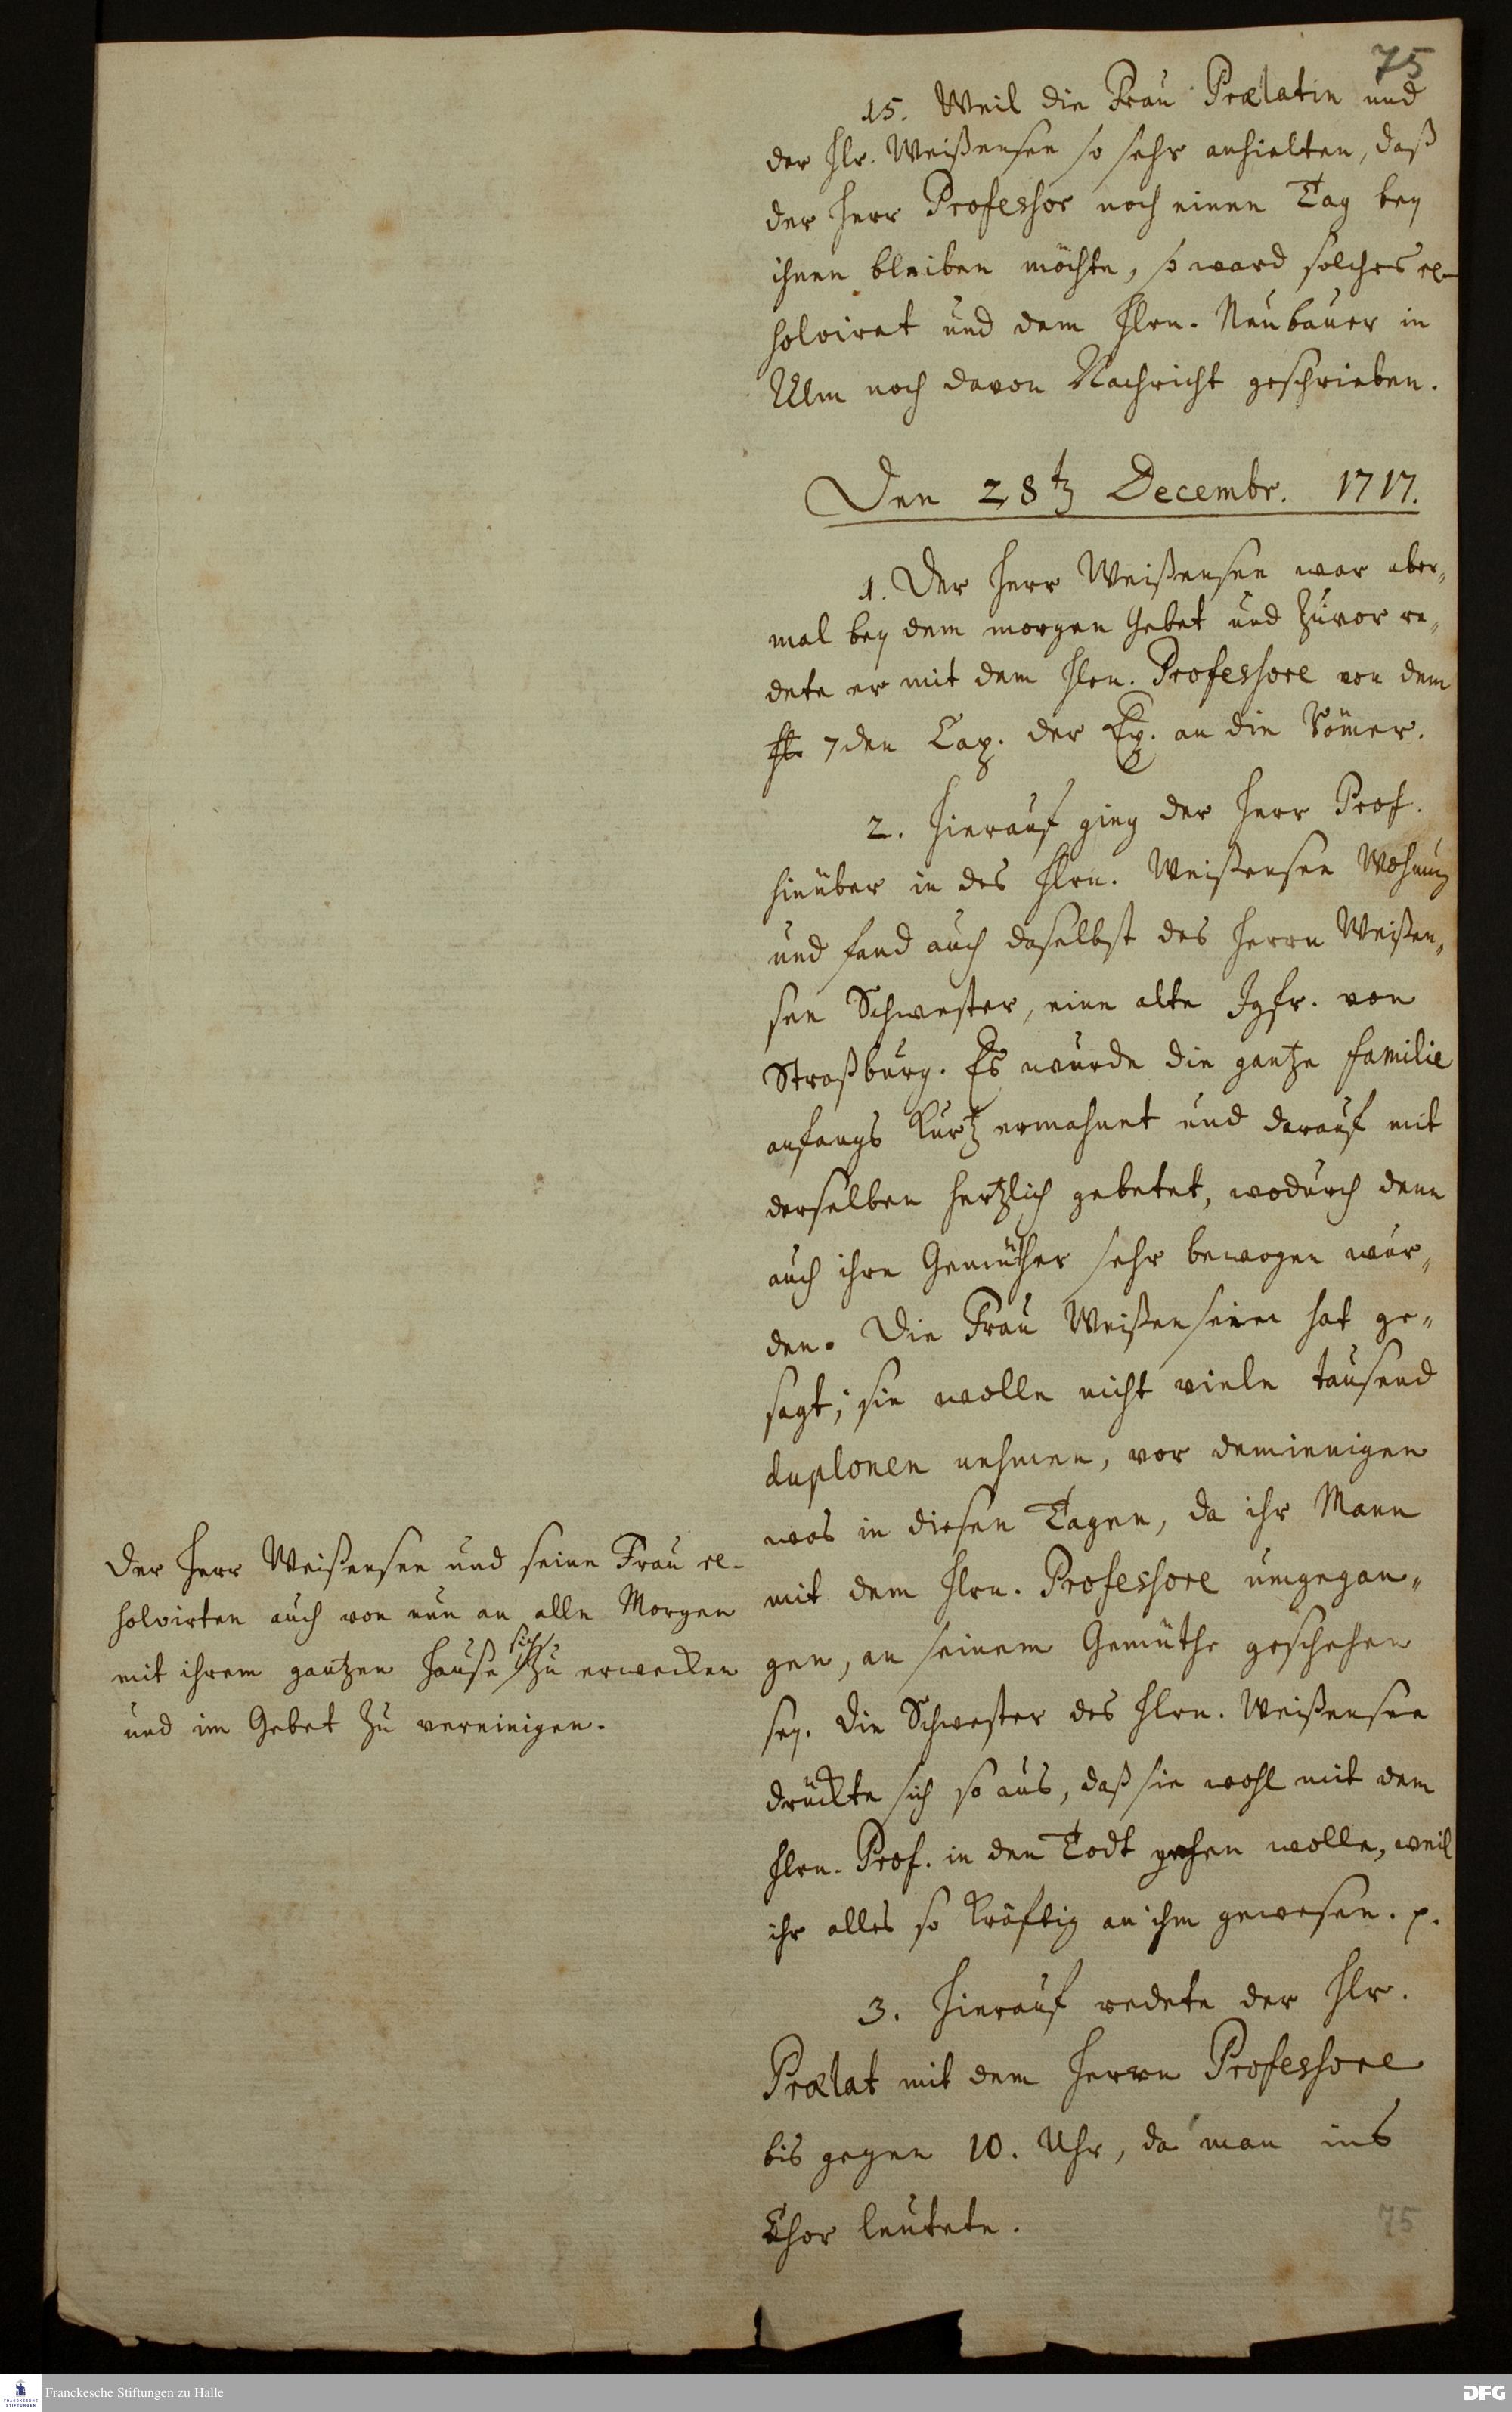 75
15. Weil die Frau Prælatin und
der Hr. Weißensee so sehr anhielten, daß
der Herr Professor noch einen Tag bey
ihnen bleiben möchte, so ward solches re-
solviret und dem Hrn. Neubauer in
Ulm noch davon Nachricht geschrieben.
Den 28t. Decembr. 1717.
1. Der Herr Weißensee war aber„
mal bey dem morgen Gebet und zuvor re„
dete er mit dem Hrn. Professore von dem
7den Cap. der Ep. an die Römer.
2. Hierauf ging der Herr Prof.
hinüber in des Hrn. Weißensee Wohnung
und fand auch daselbst des Herrn Weißen„
see Schwester, eine alte Jgfr. von
Straßburg. Es wurde die gantze familie
anfangs kurtz ermahnet und darauf mit
derselben hertzlich gebetet, wodurch denn
auch ihre Gemüther sehr bewogen wur„
den. Die Frau Weißenseen hat ge„
sagt; sie wolle nicht viele tausend
duplonen nehmen, vor demienigen
was in diesen Tagen, da ihr Mann
mit dem Hrn. Professore umgegan„
gen, an seinem Gemüthe geschehen
sey. Die Schwester des Hrn. Weißensee
drückte sich so aus, daß sie wohl mit dem
Hrn. Prof. in den Todt gehen wolle, weil
ihr alles so kräftig an ihm gewesen. p.
3. Hierauf redete der Hr.
Prælat mit dem Herrn Professore
bis gegen 10. Uhr, da man ins
Chor leutete.
75
Der Herr Weißensee und seine Frau re-
solvirten auch von nun an alle Morgen
mit ihrem gantzen Hause sich zu erwecken
und im Gebet zu vereinigen.
Franckesche Stiftungen zu Halle
DFG